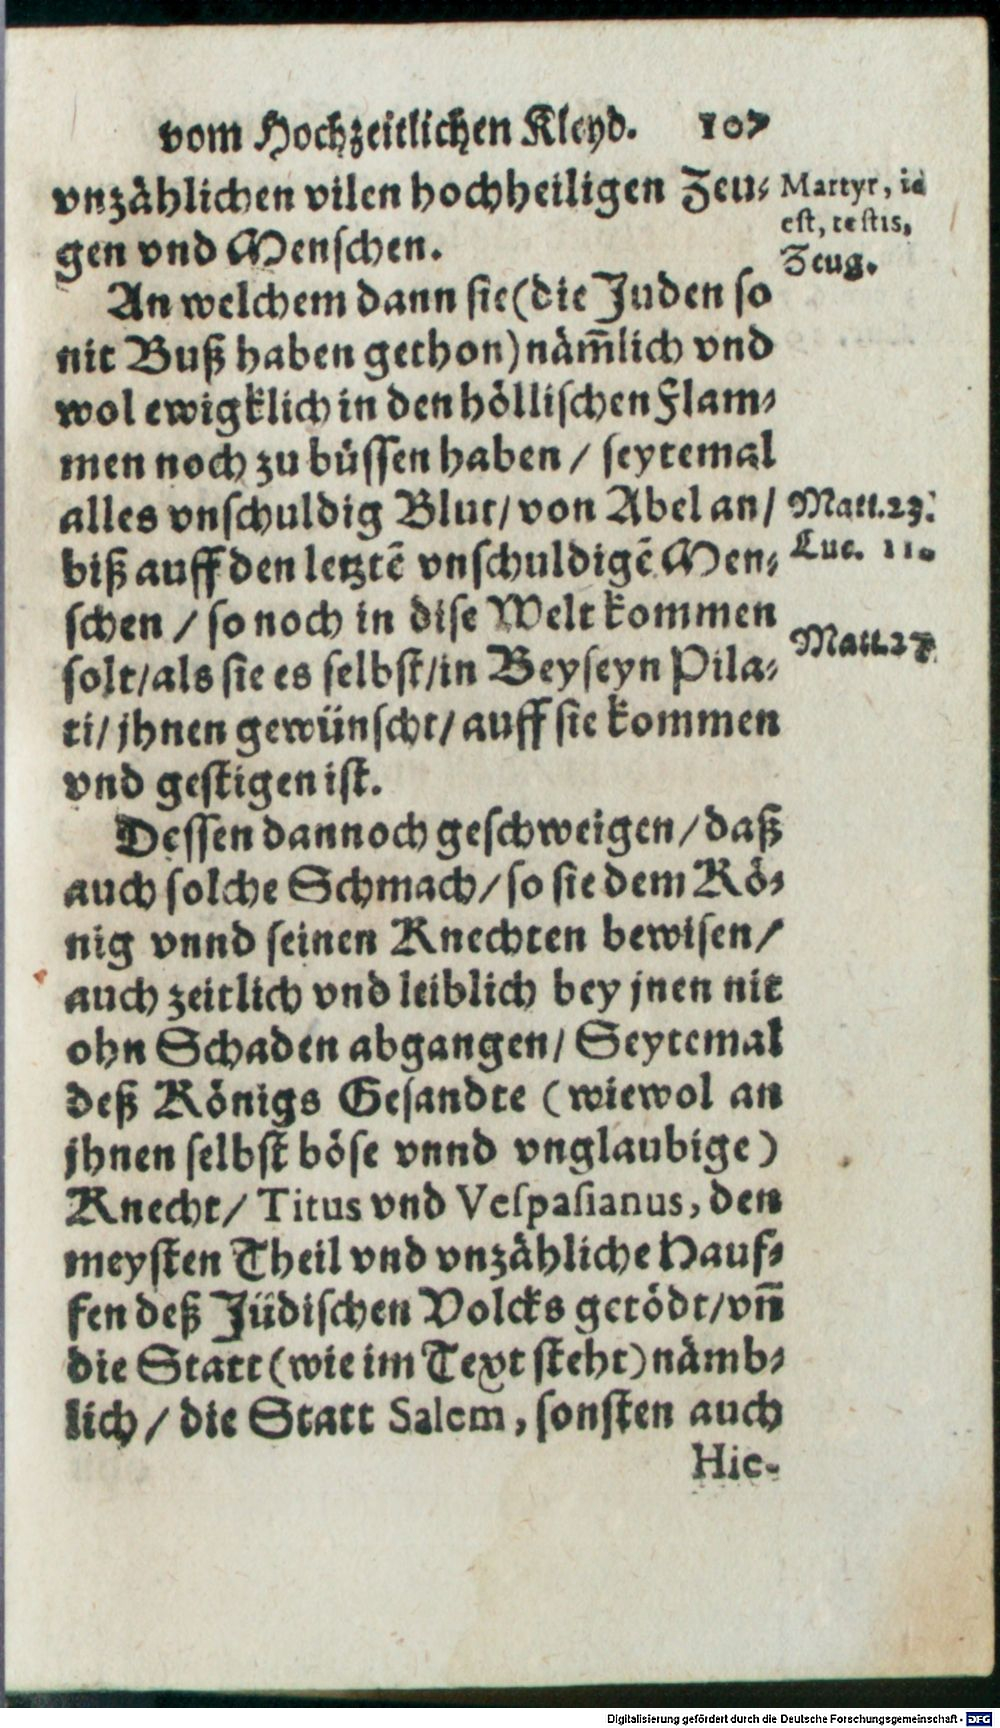 vom Hochzeitlichen Kleyd. 107
vnzählichen vilen hochheiligen Zeu-
gen vnd Menschen.
Martyr, id
est, testis,
Zeug.
An welchem dann sie (die Juden so
nit Buß haben gethon) näm̃lich vnd
wol ewigklich in den höllischen Flam-
men noch zu büssen haben / seytemal
alles vnschuldig Blut / von Abel an /
biß auff den letztẽ vnschuldigẽ Men-
schen / so noch in dise Welt kommen
solt / als sie es selbst / in Beyseyn Pila-
ti / jhnen gewünscht / auff sie kommen
vnd gestigen ist.
Matt. 23.
Luc. 11.
Matt. 27.
Dessen dannoch geschweigen / daß
auch solche Schmach / so sie dem Kö-
nig vnnd seinen Knechten bewisen /
auch zeitlich vnd leiblich bey jnen nit
ohn Schaden abgangen / Seytemal
deß Königs Gesandte (wiewol an
jhnen selbst böse vnnd vnglaubige)
Knecht / Titus vnd Vespasianus, den
meysten Theil vnd vnzähliche Hauf-
fen deß Jüdischen Volcks getödt / vñ
die Statt (wie im Text steht) nämb-
lich / die Statt Salem, sonsten auch
Hie-
Digitalisierung gefördert durch die Deutsche Forschungsgemeinschaft - DFG